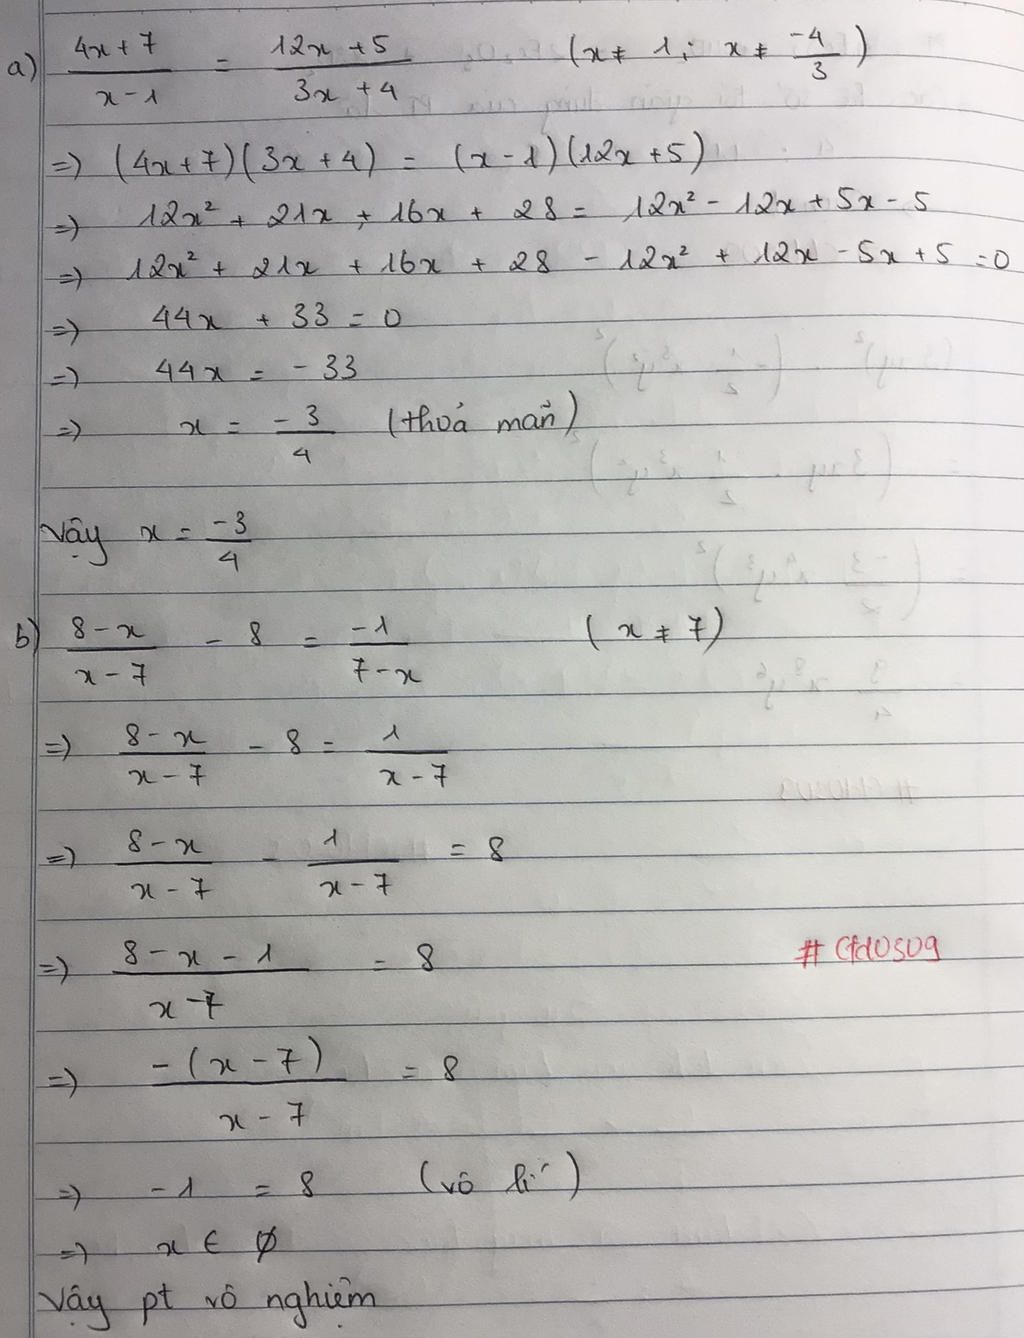 a) (4x+7)/(x-1) = (12x+5)/(3x+4) (x ≠ 1; x ≠ -4/3)
=> (4x+7)(3x+4) = (x-1)(12x+5)
=> 12x² + 21x + 16x + 28 = 12x² - 12x + 5x - 5
=> 12x² + 21x + 16x + 28 - 12x² + 12x - 5x + 5 = 0
=> 44x + 33 = 0
=> 44x = -33
=> x = -3/4 (thoả mãn)
Vậy x = -3/4
b) (8-x)/(x-7) - 8 = -1/(7-x) (x ≠ 7)
=> (8-x)/(x-7) - 8 = 1/(x-7)
=> (8-x)/(x-7) - 1/(x-7) = 8
=> (8-x-1)/(x-7) = 8
=> -(x-7)/(x-7) = 8
=> -1 = 8 (vô lí)
=> x ∈ ∅
Vậy pt vô nghiệm